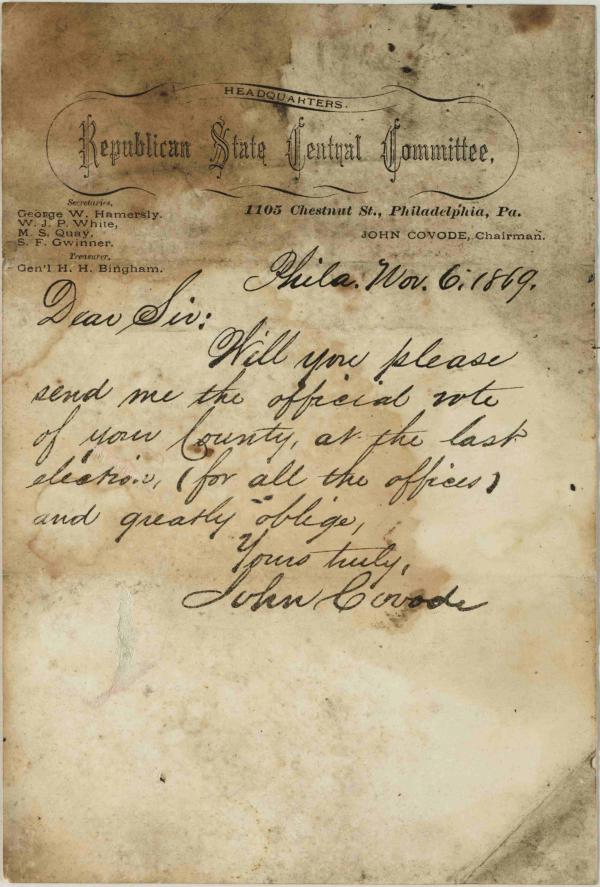 HEADQUARTERS.
Republican State Central Committee,
Secretaries,
George W. Hamersly.
W. J. P. White,
M. S. Quay.
S. F. Gwinner.
Treasurer,
Gen'l H. H. Bingham.
1105 Chestnut St., Philadelphia, Pa.
JOHN COVODE, Chairman.
Phila. Nov. 6. 1869.
Dear Sir:
Will you please
send me the official vote
of your County, at the last
election, (for all the offices)
and greatly oblige,
Yours truly,
John Covode